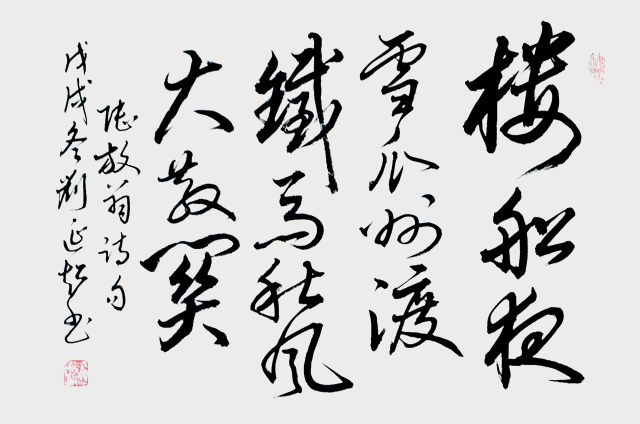 楼船夜
雪瓜州渡
鐵马秋风
大散关
陆放翁诗句
戊戌冬刘延超书